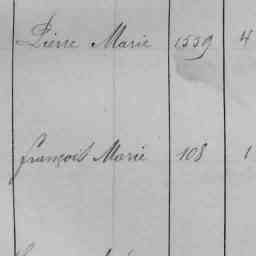 Pierre Marie 1539 4
françois Marie 108 1